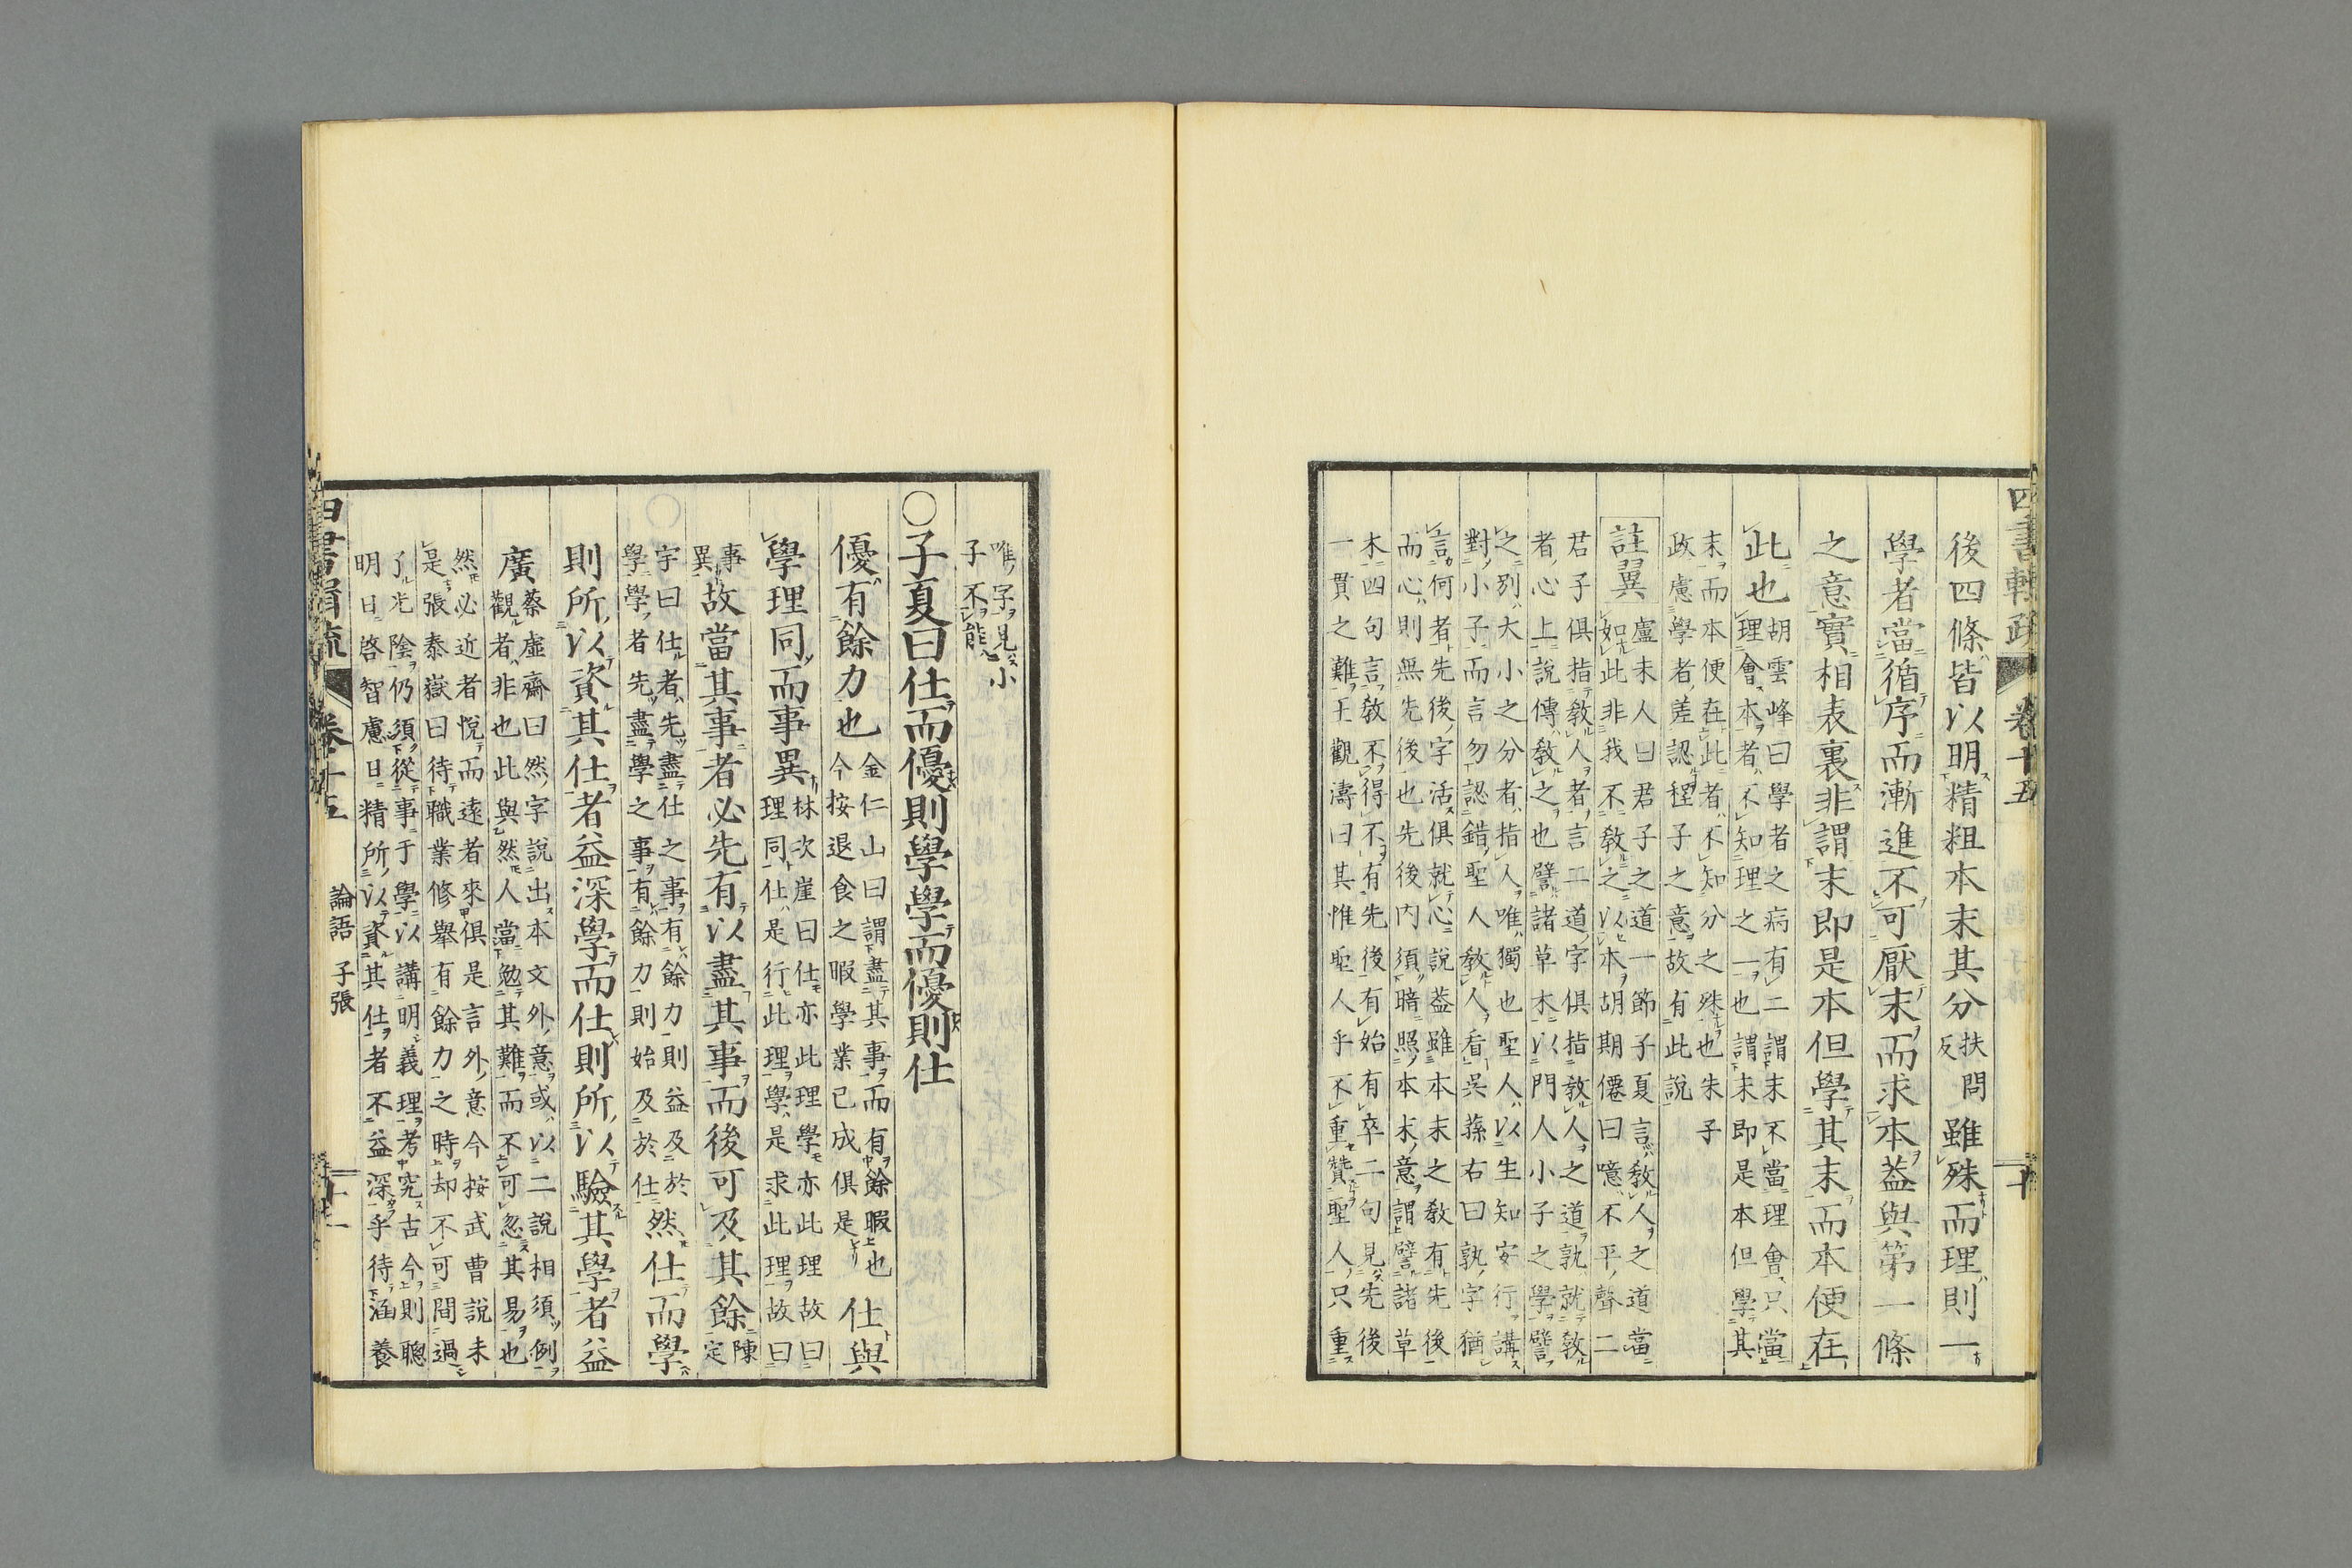 四書輯疏　卷十五　二十
後四條皆以明精粗本末其分扶問反雖殊而理則一
學者當循序而漸進不可厭末而求本葢與第一條
之意實相表裏非謂末即是本但學其末而本便在
此也胡雲峰曰學者之病有二謂末不當理會只當
理會本者不知理之一也謂末即是本但學其
末而本便在此者不知分之殊也朱子
政慮學者差認程子之意故有此說
註翼盧未人曰君子之道一節子夏言教人之道當
如此非我不教之以本胡期僊曰噫不平聲二
君子俱指教人者言二道字俱指教人之道孰就教
者心上說傳教之也譬諸草木以門人小子之學譬
之別大小之分者指人唯獨也聖人以生知安行講
對小子而言勿認錯聖人教人看吳蓀右曰孰字猶
言何者先後字活俱就心說葢雖本末之教有先後
而心則無先後也先後內須暗照本末意謂譬諸草
木四句言教不得不有先後有始有卒二句見先後
一貫之難王觀濤曰其惟聖人乎不重贊聖人只重
唯字見小
子不能
○子夏曰仕而優則學學而優則仕
優有餘力也金仁山曰謂盡其事而有餘暇也
今按退食之暇學業已成俱是仕與
學理同而事異林次崖曰仕亦此理學亦此理故曰
理同仕是行此理學是求此理故曰
事異故當其事者必先有以盡其事而後可及其餘陳定
宇曰仕者先盡仕之事有餘力則益及於
學學者先盡學之事有餘力則始及於仕然仕而學
則所以資其仕者益深學而仕則所以驗其學者益
廣蔡虛齋曰然字說出本文外意或以二說相須例
觀者非也此與然人當勉其難而不可忽其易也
然必近者悅而遠者來俱是言外意今按武曹說未
是張泰嶽曰待職業修舉有餘力之時却不可間過
了光陰仍須從事于學以講明義理考究古今則聰
明日啓智慮日精所以資其仕者不益深乎待涵養
四書輯疏　卷十五　論語　子張